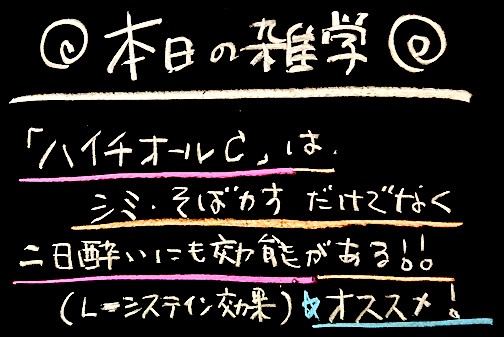 @ 本日の雑学 @
「ハイチオールC」は、
シミ・そばかすだけでなく
二日酔いにも効能がある!!
(L=システイン効果) ☆オススメ!